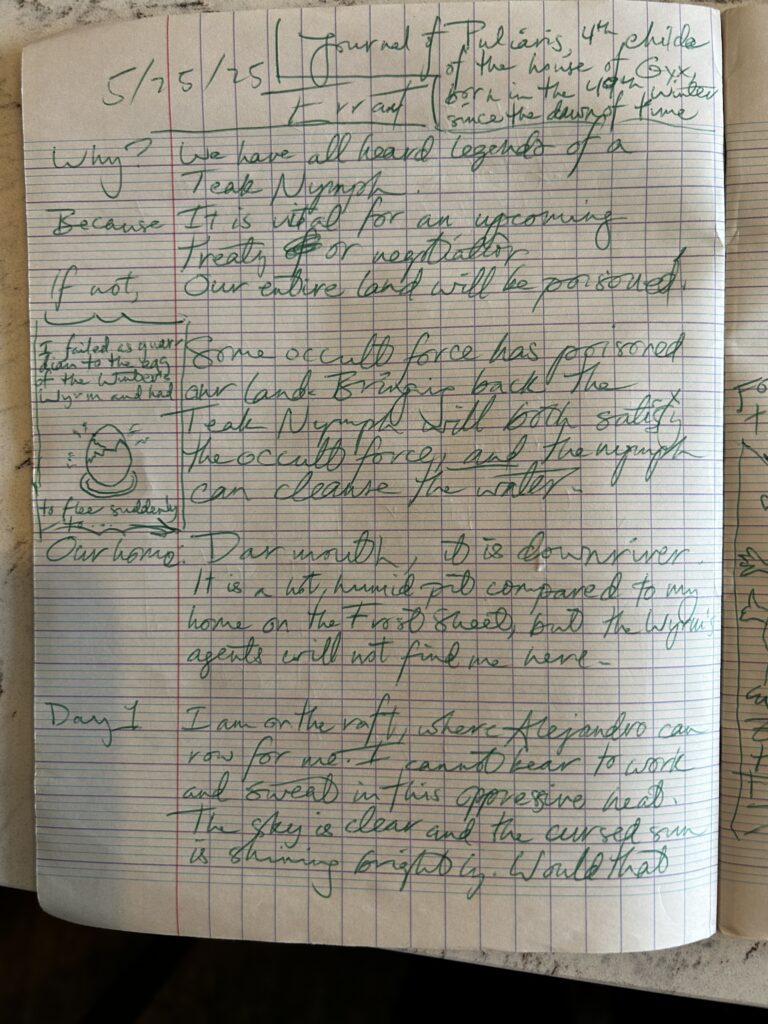 5/25/25
Journal of Puliaris, 4th childe
of the house of Gyx,
born in the 40th winter
since the dawn of time
Errant
Why? We have all heard legends of a
Teak Nymph.
Because It is vital for an upcoming
treaty or negotiation
If not, Our entire land will be poisoned.
I failed as guar-
dian to the egg
of the Winter's
Wyrm and had
to flee suddenly
to...
Some occult force has poisoned
our land. Bringing back the
Teak Nymph will both satisfy
the occult force, and the nymph
can cleanse the water.
Our home: Darmouth, it is downriver.
It is a hot, humid pit compared to my
home on the Frost Sheet, but the Wyrm's
agents will not find me here.
Day 1 I am on the raft, where Alejandro can
row for me. I cannot bear to work
and sweat in this oppressive heat.
The sky is clear and the cursed sun
is shining brightly. Would that